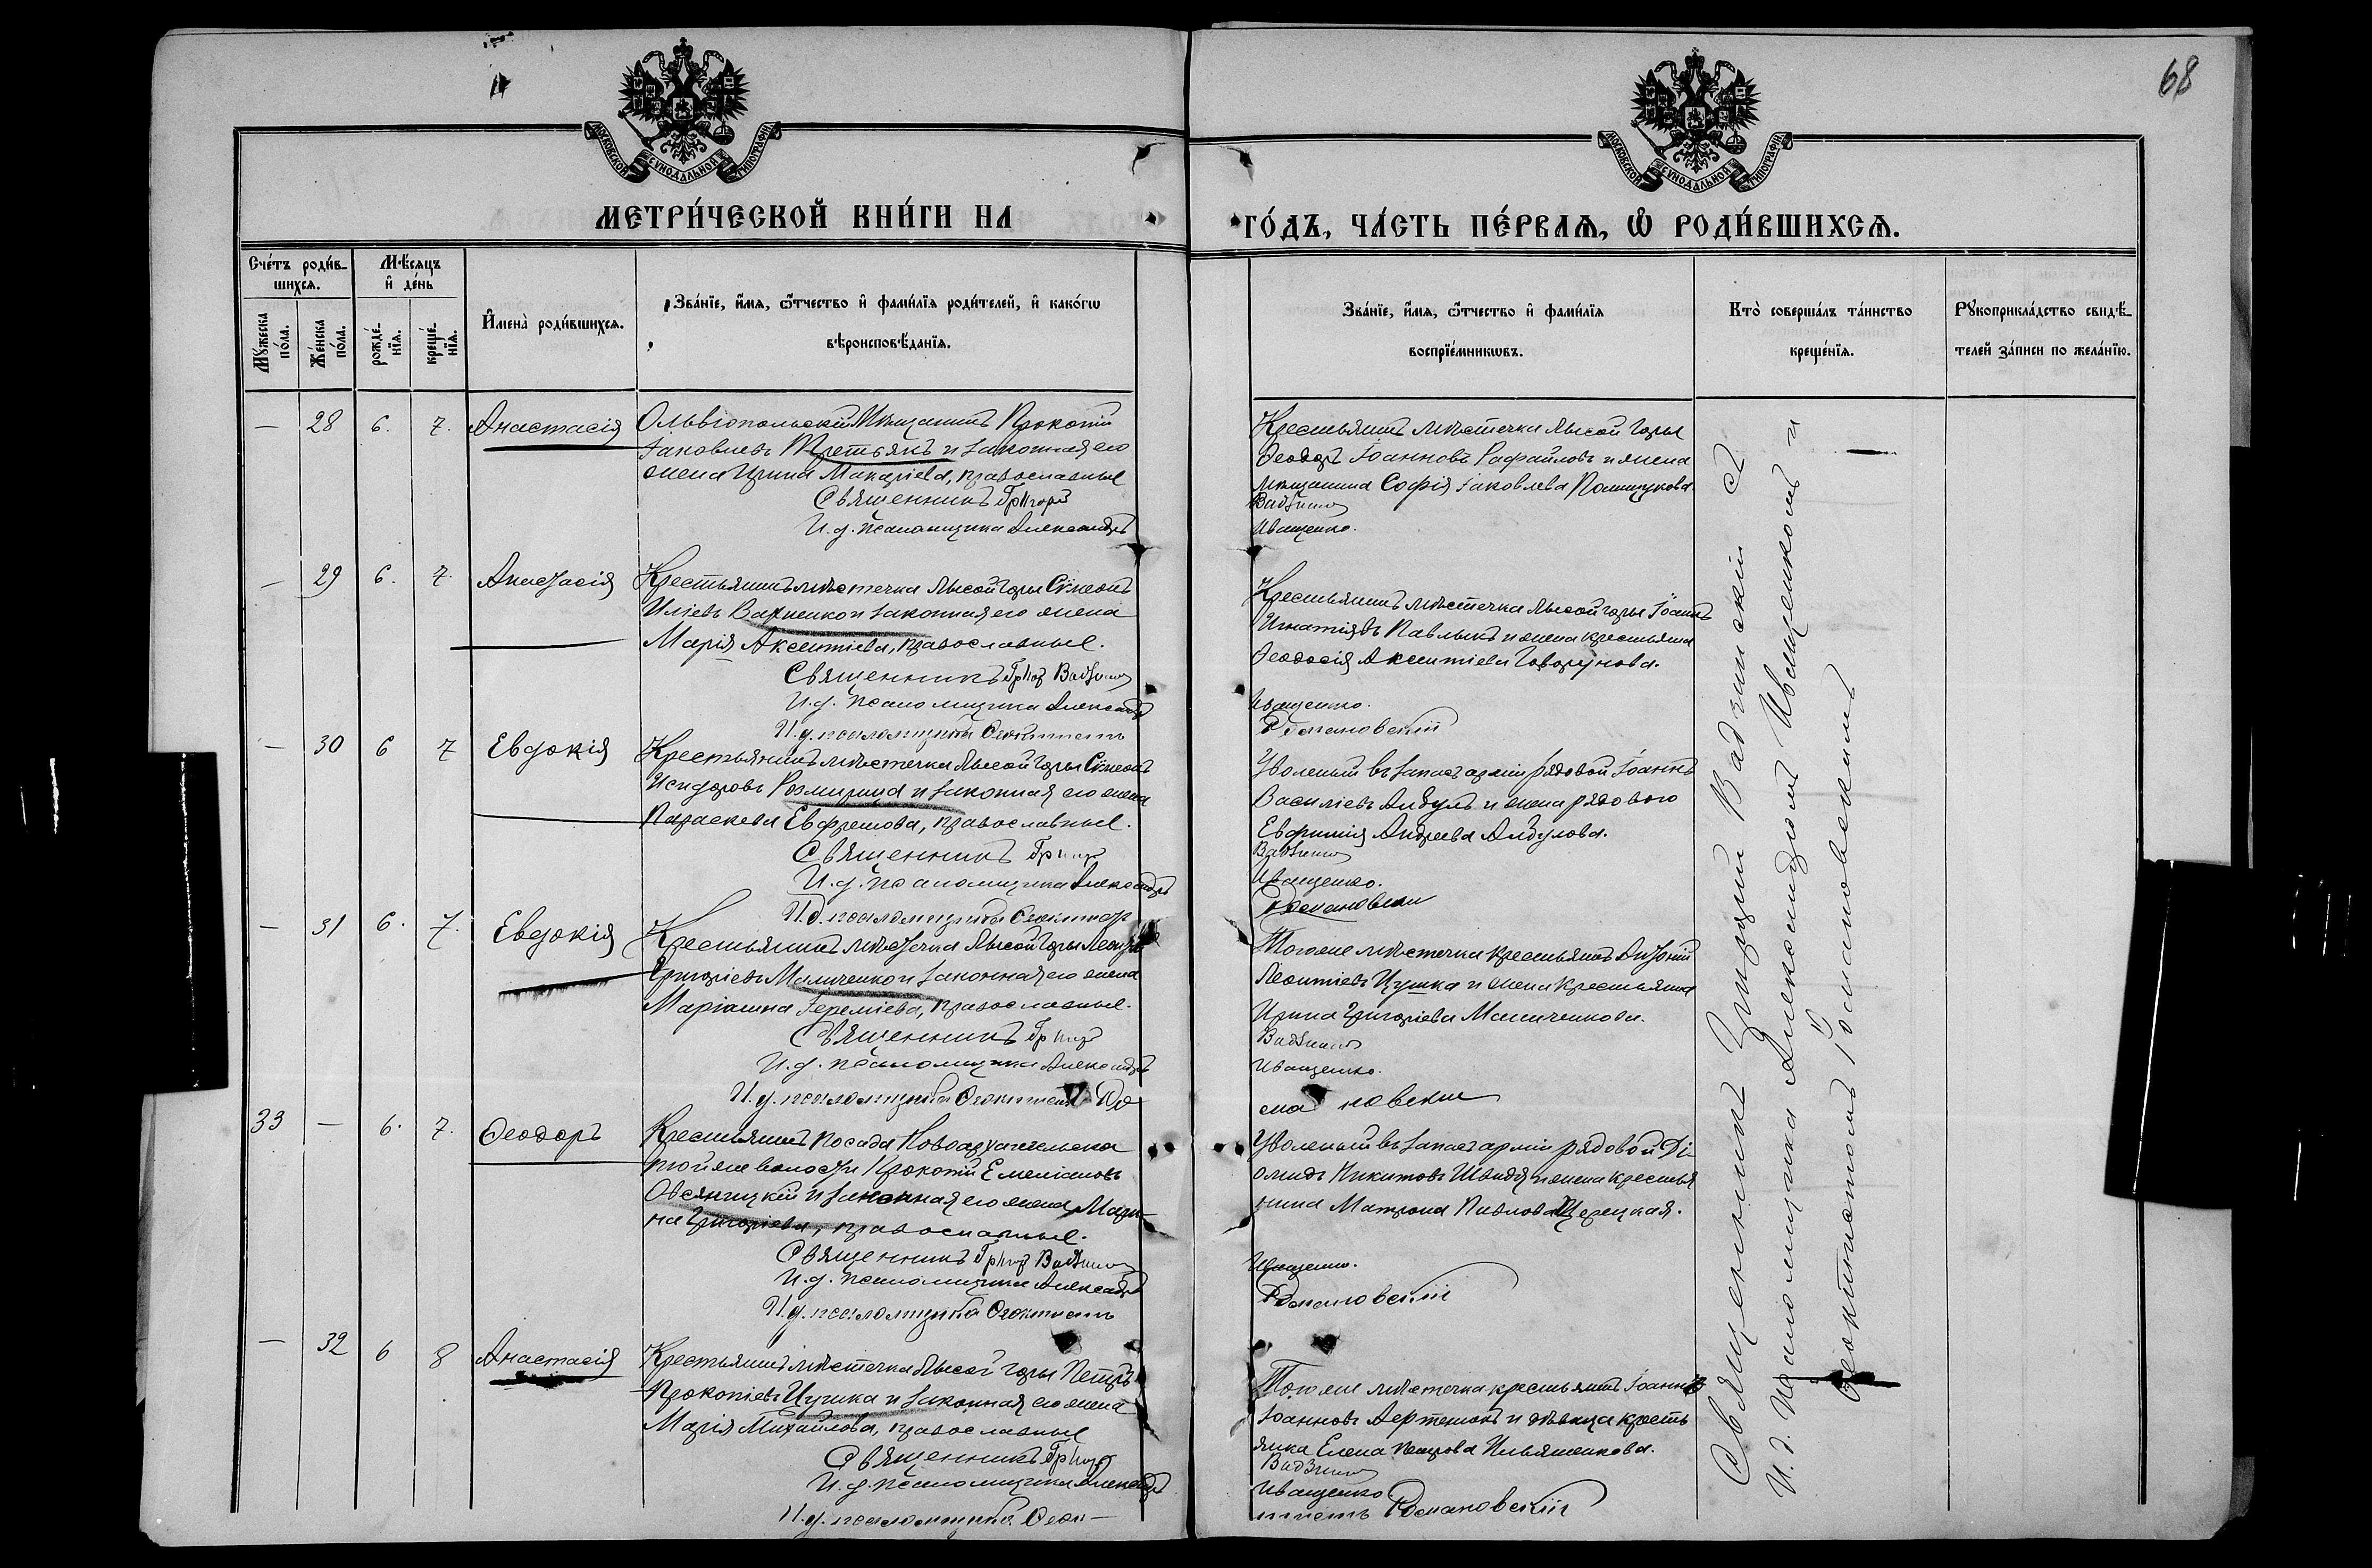 68
МОСКОВСКОЙ СѴНОДАЛЬНОЙ ТИПОГРАФІИ
МОСКОВСКОЙ СѴНОДАЛЬНОЙ ТИПОГРАФІИ
МЕТРИ́ЧЕСКОЙ КНИ́ГИ НА
ГО́ДЪ, ЧА́СТЬ ПЕ́РВАѦ, Ѡ҆ РОДИ́ВШИХСѦ.
Сче́тъ роди́в-
шихсѧ.
Мѣ́сѧцъ
и҆ де́нь
Мꙋ́жеска
по́ла.
Же́нска
по́ла.
рожде́-
нїѧ.
креще́-
нїѧ.
И҆мена̀ роди́вшихсѧ.
Зва́нїе, и҆́мѧ, ѻ҆́тчество и҆ фами́лїѧ роди́телей, и҆ како́гѡ
вѣроисповѣ́данїѧ.
Зва́нїе, и҆́мѧ, ѻ҆́тчество и҆ фами́лїѧ
воспрїе́мникѡвъ.
Кто̀ соверша́лъ та́инство
креще́нїѧ.
Рꙋкоприкла́дство свидѣ́-
телей за́писи по жела́нїю.
— 28 6. 7. Анастасія
Ольвіопольскій Мѣщанинъ Прокопій
Іаковлевъ Третьякъ и законная его
жена Ирина Макаріева, православные
Священникъ Григорій
И. д. псаломщика Александръ
Крестьянинъ мѣстечка Лысой Горы
Ѳеодоръ Іоанновъ Рафаиловъ и жена
мѣщанина Софія Іаковлева Полищукова.
Вадзинс
Иващенко.
— 29 6. 7. Анастасія
Крестьянинъ мѣстечка Лысой Горы Сѵмеонъ
Иліевъ Варненко и законная его жена
Марія Аксентіева, православные.
Священникъ Григ Вадзинс
И. д. псаломщика Александръ
И. д. псаломщика Ѳеоктистъ
Крестьянинъ мѣстечка Лысой горы Іоаннъ
Игнатіевъ Павлыкъ и жена крестьянина
Ѳеодосія Аксентіева Говорунова.
Иващенко.
Романовскій
— 30 6 7 Евдокія
Крестьянинъ мѣстечка Лысой Горы Сѵмеонъ
Исидоровъ Розмирица и законная его жена
Параскева Евфремова, православные.
Священникъ Григ
И. д. псаломщика Александръ
И. д. псаломщика Ѳеоктистъ
Уволеный въ запасъ арміи рядовой Іоаннъ
Василіевъ Андулъ и жена рядового
Евфимія Андреева Андулова.
Вадзинс
Иващенко.
Романовскій
— 31 6. 7. Евдокія
Крестьянинъ мѣстечка Лысой Горы
Григоріевъ Маличенко и законная его жена
Маріанна Іереміева, православные.
Священникъ Григ
И. д. псаломщика Александръ
И. д. псаломщика Ѳеоктистъ Ро
Тогоже мѣстечка крестьянинъ Антоній
Леонтіевъ Цушка и жена крестьянина
Ирина Григоріева Маличенкова.
Вадзинс
Иващенко.
мановскій
33 — 6. 7. Ѳеодоръ
Крестьянинъ посада Новоархангельска
тойже волости Прокопій Емеліановъ
Овсяницкій и законная его жена Мари-
на Григоріева, православные.
Священникъ Григ Вадзинс
И. д. псаломщика Александръ
И. д. псаломщика Ѳеоктистъ
Уволеный въ запасъ арміи рядовой Ді-
омидъ Никитовъ Швидя и жена крестья
нина Матрона Павлова Щерецкая.
Иващенко.
Романовскій
— 32 6 8 Анастасія
Крестьянинъ мѣстечка Лысой Горы Петръ
Прокопіевъ Цушка и законная его жена
Марія Михаилова, православные
Священникъ Григ
И. д. псаломщика Александръ
И. д. псаломщика Ѳеок-
Тогоже мѣстечка крестьянинъ Іоаннъ
Іоанновъ Дертенюкъ и дѣвица кресть
янка Елена Петрова Ильяшенкова.
Вадзинс
Иващенко
тистъ Романовскій
Священникъ Григорій Вадзинскій С
И. д. Псаломщика Александромъ Иващенкомъ и
Ѳеоктистомъ Романовскимъ